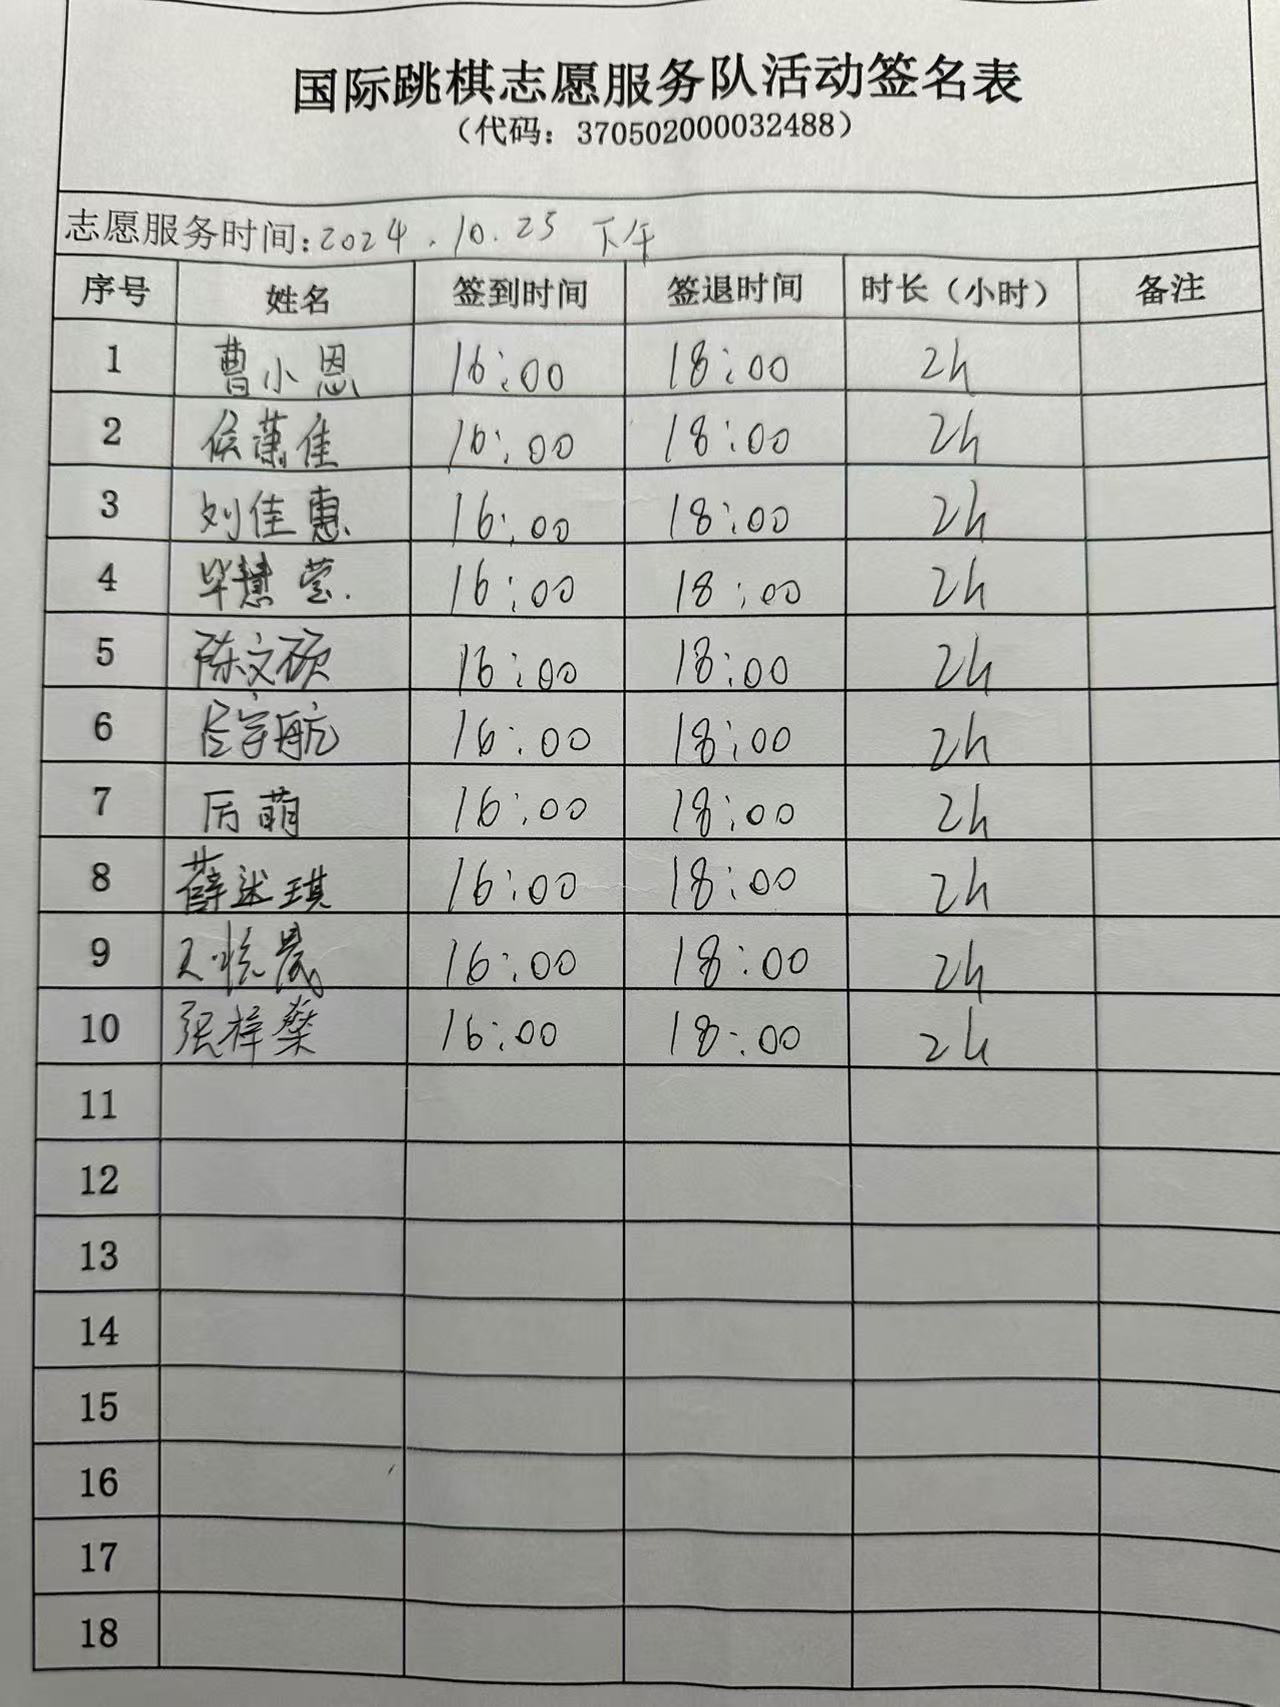 国际跳棋志愿服务队活动签名表
（代码：370502000032488）
志愿服务时间：2024.10.25 下午
序号 姓名 签到时间 签退时间 时长（小时） 备注
1 曹小恩 16:00 18:00 2h
2 侯萧佳 16:00 18:00 2h
3 刘佳惠 16:00 18:00 2h
4 毕慧莹 16:00 18:00 2h
5 陈文硕 16:00 18:00 2h
6 宇航 16:00 18:00 2h
7 厉萌 16:00 18:00 2h
8 薛述琪 16:00 18:00 2h
9 16:00 18:00 2h
10 张梓燊 16:00 18:00 2h
11
12
13
14
15
16
17
18